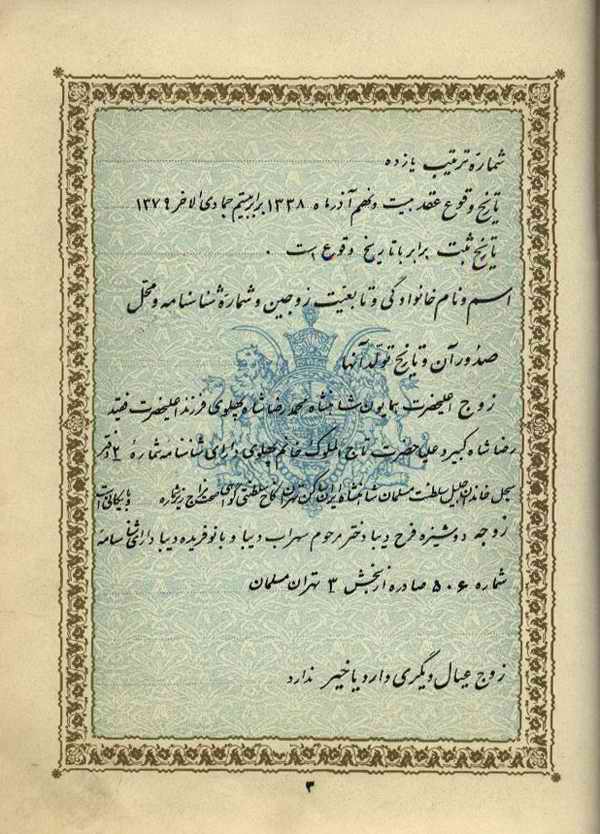 شمارهٔ ترتیب یازده
تاریخ وقوع عقد بیست و نهم آذرماه ۱۳۳۸ برابر بیستم جمادی الاخر ۱۳۷۹
تاریخ ثبت برابر با تاریخ وقوع است .
اسم و نام خانوادگی و تابعیّت زوجین و شمارهٔ شناسنامه و محلّ
صدور آن و تاریخ تولّد آنها
زوج اعلیحضرت همایون شاهنشاه محمدرضا شاه پهلوی فرزند اعلیحضرت فقید
رضا شاه کبیر و علیاحضرت تاج الملوک خانم پهلوی دارای شناسنامه شمارهٔ ۲ دفتر
سجل خاندان جلیل سلطنت مسلمان شاهنشاه ایران ساکن تهران نکاح سلطنتی گواهی صحت مزاج زیر شماره و بایگانی است
زوجه دوشیزه فرح دیبا دختر مرحوم سهراب دیبا و بانو فریده دیبا دارای شناسنامه
شماره ۵۰۶ صادره از بخش ۳ تهران مسلمان
زوج عیال دیگری دارد یا خیر ندارد
۳